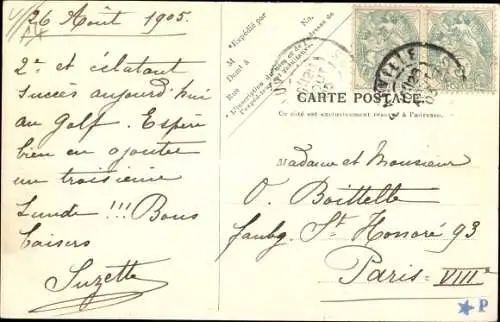 26 Août 1905.
2e et éclatant
succès aujourd'hui
au Golf. Espère
bien en ajouter
un troisième
Lundi !!! Bons
baisers
Suzette
Expédié par
No.
M
Demt à
Rue
L'inscription du nom et de l'adresse de
l'expéditeur
CARTE POSTALE
Ce côté est exclusivement réservé à l'adresse.
Madame et Monsieur
O. Boittelle
faubg. St Honoré 93
Paris-VIIIe
P